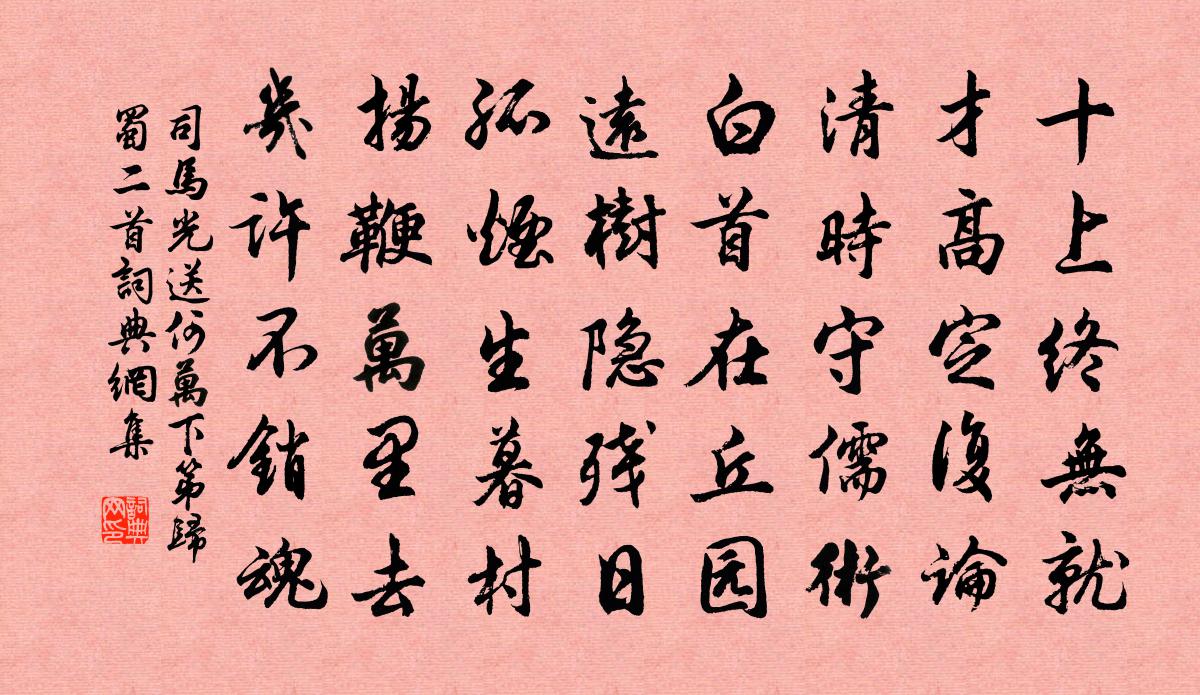 十上终無就
才高定復論
清時守儒術
白首在丘园
遠樹隐残日
孤煙生暮村
揚鞭萬里去
幾許不銷魂
司馬光送何萬下第歸
蜀二首詞典網集
詞典
网印